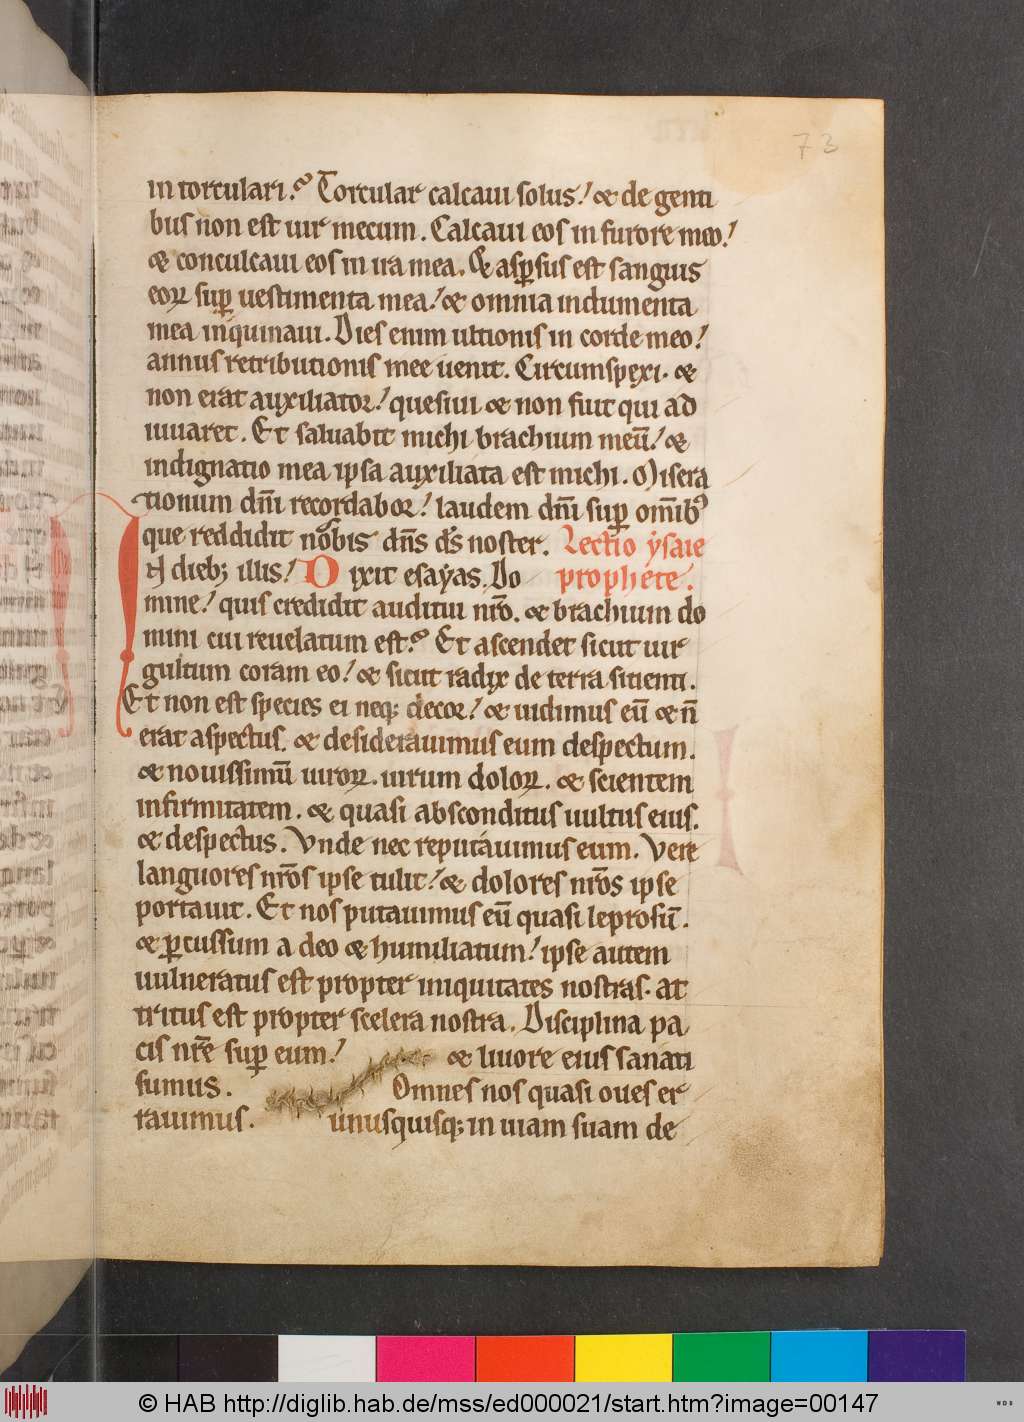 73
in torculari.? Torcular calcaui solus! & de genti
bus non est uir mecum. Calcaui eos in furore meo!
& conculcaui eos in ira mea. & asꝑsus est sanguis
eoꝝ suꝑ uestimenta mea! & omnia indumenta
mea inquinaui. Dies enim ultionis in corde meo!
annus retributionis mee uenit. Circumspexi. &
non erat auxiliator! quesiui & non fuit qui ad
iuuaret. Et saluabit michi brachium meū! &
indignatio mea ipsa auxiliata est michi. Misera
tionum dn̄i recordabor! laudem dn̄i suꝑ om̄ibꝰ
que reddidit nobis dn̄s ds̄ noster. Lectio ysaie
IN diebꝫ illis! Dixit esayas. Do prophete.
mine! quis credidit auditui nr̄o. & brachium do
mini cui reuelatum est.? Et ascendet sicut uir
gultum coram eo! & sicut radix de terra sitienti.
Et non est species ei neqꝫ decor! & uidimus eū & n̄
erat aspectus. & desiderauimus eum despectum.
& nouissimū uiroꝝ. uirum doloꝝ. & scientem
infirmitatem. & quasi absconditus uultus eius.
& despectus. Vnde nec reputauimus eum. Vere
languores nr̄os ipse tulit! & dolores nr̄os ipse
portauit. Et nos putauimus eū quasi leprosū.
& ꝑcussum a deo & humiliatum! ipse autem
uulneratus est propter iniquitates nostras. at
tritus est propter scelera nostra. Disciplina pa
cis nr̄e suꝑ eum! & liuore eius sanati
sumus. Omnes nos quasi oues er
rauimus. unusquisqꝫ in uiam suam de
© HAB http://diglib.hab.de/mss/ed000021/start.htm?image=00147